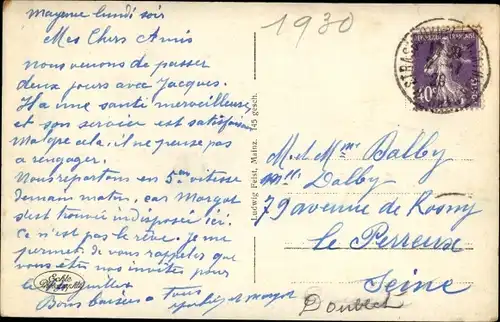 Mayence lundi soir
Mes Chers Amis
nous venons de passer
deux jours avec Jacques.
Il a une santé merveilleuse
et son service est satisfaisant
Malgré cela, il ne pense pas
a rengager.
Nous repartons en 5eme vitesse
demain matin, car Margot
s'est trouvée indisposée ici.
Ce n'est pas le rêve. Je me
permets de vous rappeler que
vous êtes nos invités pour
le
Bons baisers a tous
et Margot
Echte
1930
STRASBOURG
40c
Ludwig Feist, Mainz. 145 gesch.
M. et Mme Dalby
Mlle Dalby
79 avenue de Rosny
le Perreux
Seine
Doublet